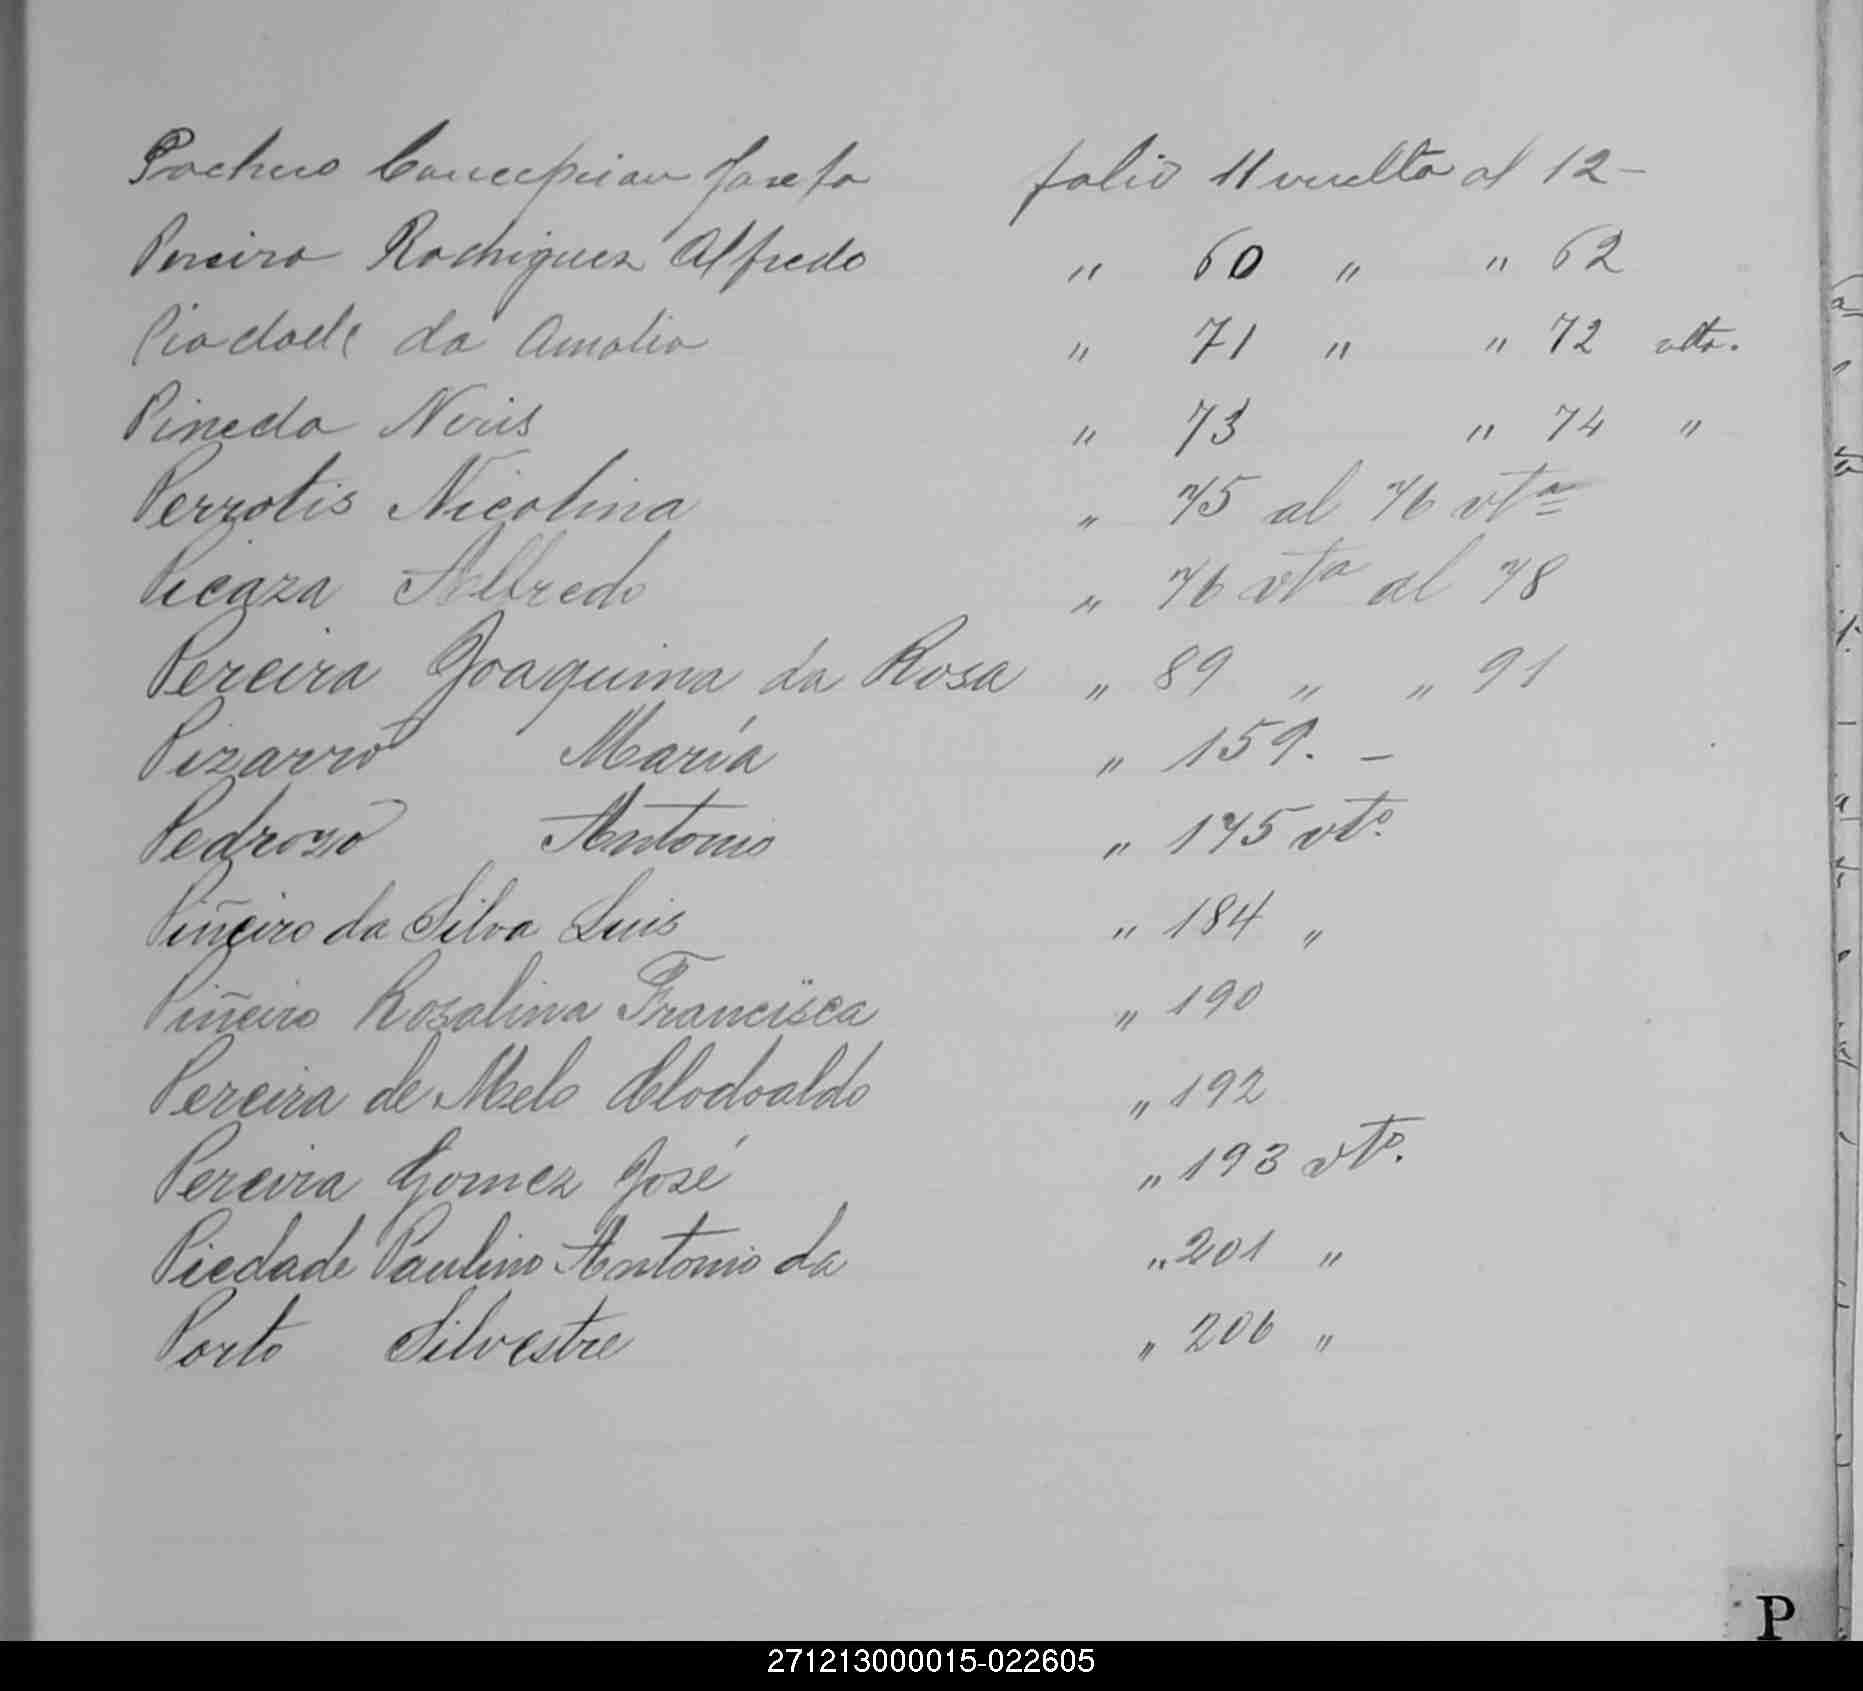 Pacheco Concepcion Josefa folio 11 vuelto al 12 -
Pereira Rodriguez Alfredo " 60 " " 62
Piadade da Amalia " 71 " " 72 vlto.
Pineda Neris " 73 " 74 "
Perrotis Nicolina " 75 al 76 vta
Picaza Alfredo " 76 vta al 78
Pereira Joaquina da Rosa " 89 " " 91
Pizarro María " 159. -
Pedrozo Antonio " 175 vto.
Piñeiro da Silva Luis " 184 "
Piñeiro Rosalina Francisca " 190
Pereira de Melo Clodoaldo " 192
Pereira Gomez José " 193 vto.
Piedade Paulino Antonio da " 201 "
Porto Silvestre " 206 "
P
271213000015-022605